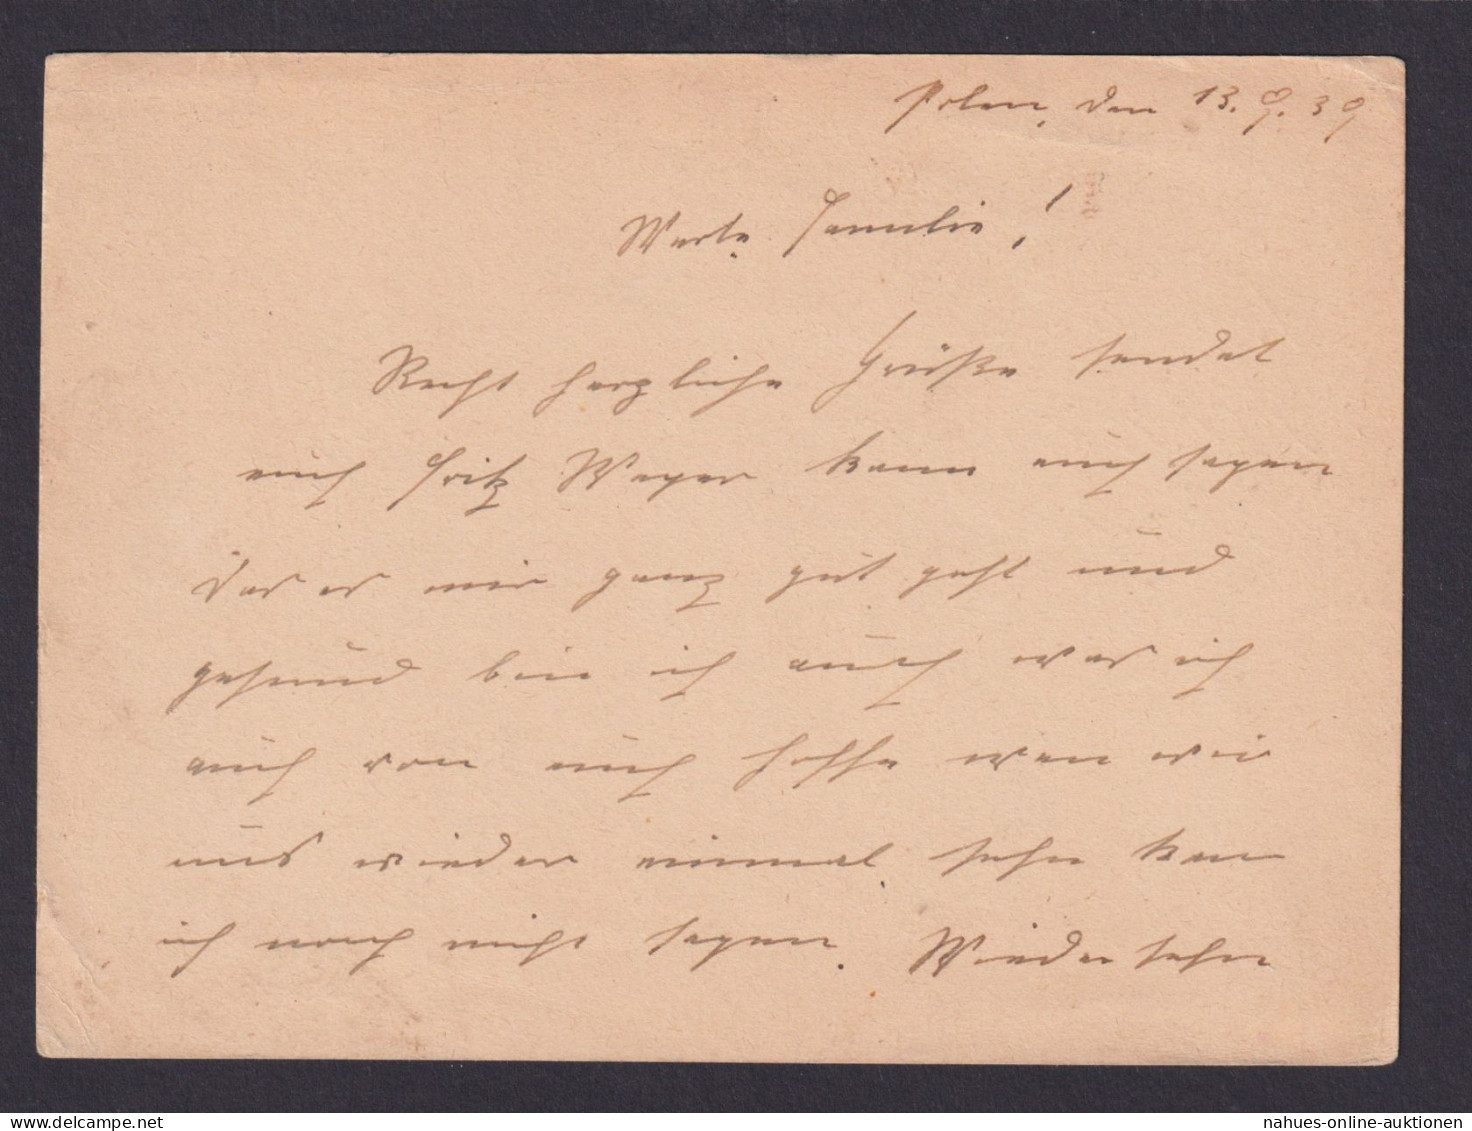 Polen, den 13. 9. 39
Werte Familie!
Recht herzliche Grüße sendet
euch Fritz Weyer kann euch sagen
das es mir ganz gut geht und
gesund bin ich auch was ich
auch von euch hoffe wen wir
uns wieder einmal sehn kan
ich noch nicht sagen. Wiedersehn
nahues-online-auktionen